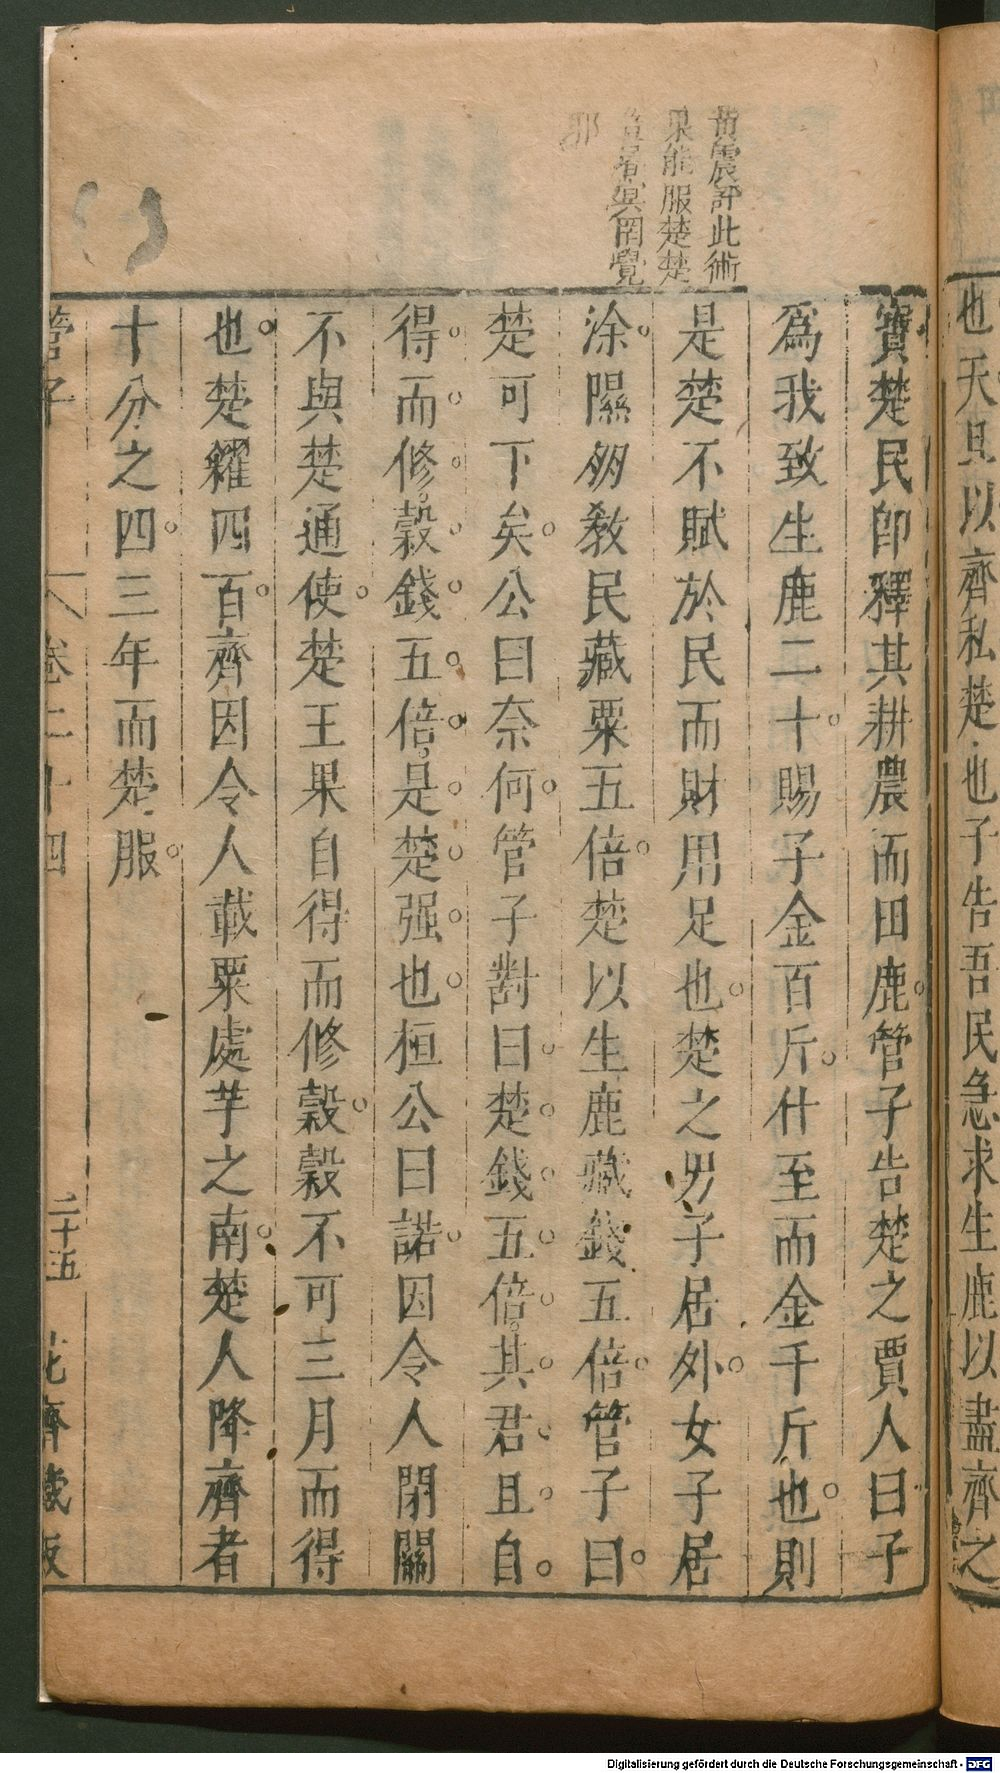 也天且以齊私楚也子告吾民急求生鹿以盡齊之
黃震評此術
果能服楚楚
冥罔覺
邪
寶楚民即釋其耕農而田鹿管子告楚之賈人曰子
爲我致生鹿二十賜子金百斤什至而金千斤也則
是楚不賦於民而財用足也楚之男子居外女子居
涂隰朋教民藏粟五倍楚以生鹿藏錢五倍管子曰
楚可下矣公曰奈何管子對曰楚錢五倍其君且自
得而修穀錢五倍是楚强也桓公曰諾因令人閉關
不與楚通使楚王果自得而修穀穀不可三月而得
也楚糴四百齊因令人載粟處芊之南楚人降齊者
十分之四三年而楚服
管子
卷二十四
二十五
花齊藏板
Digitalisierung gefördert durch die Deutsche Forschungsgemeinschaft - DFG